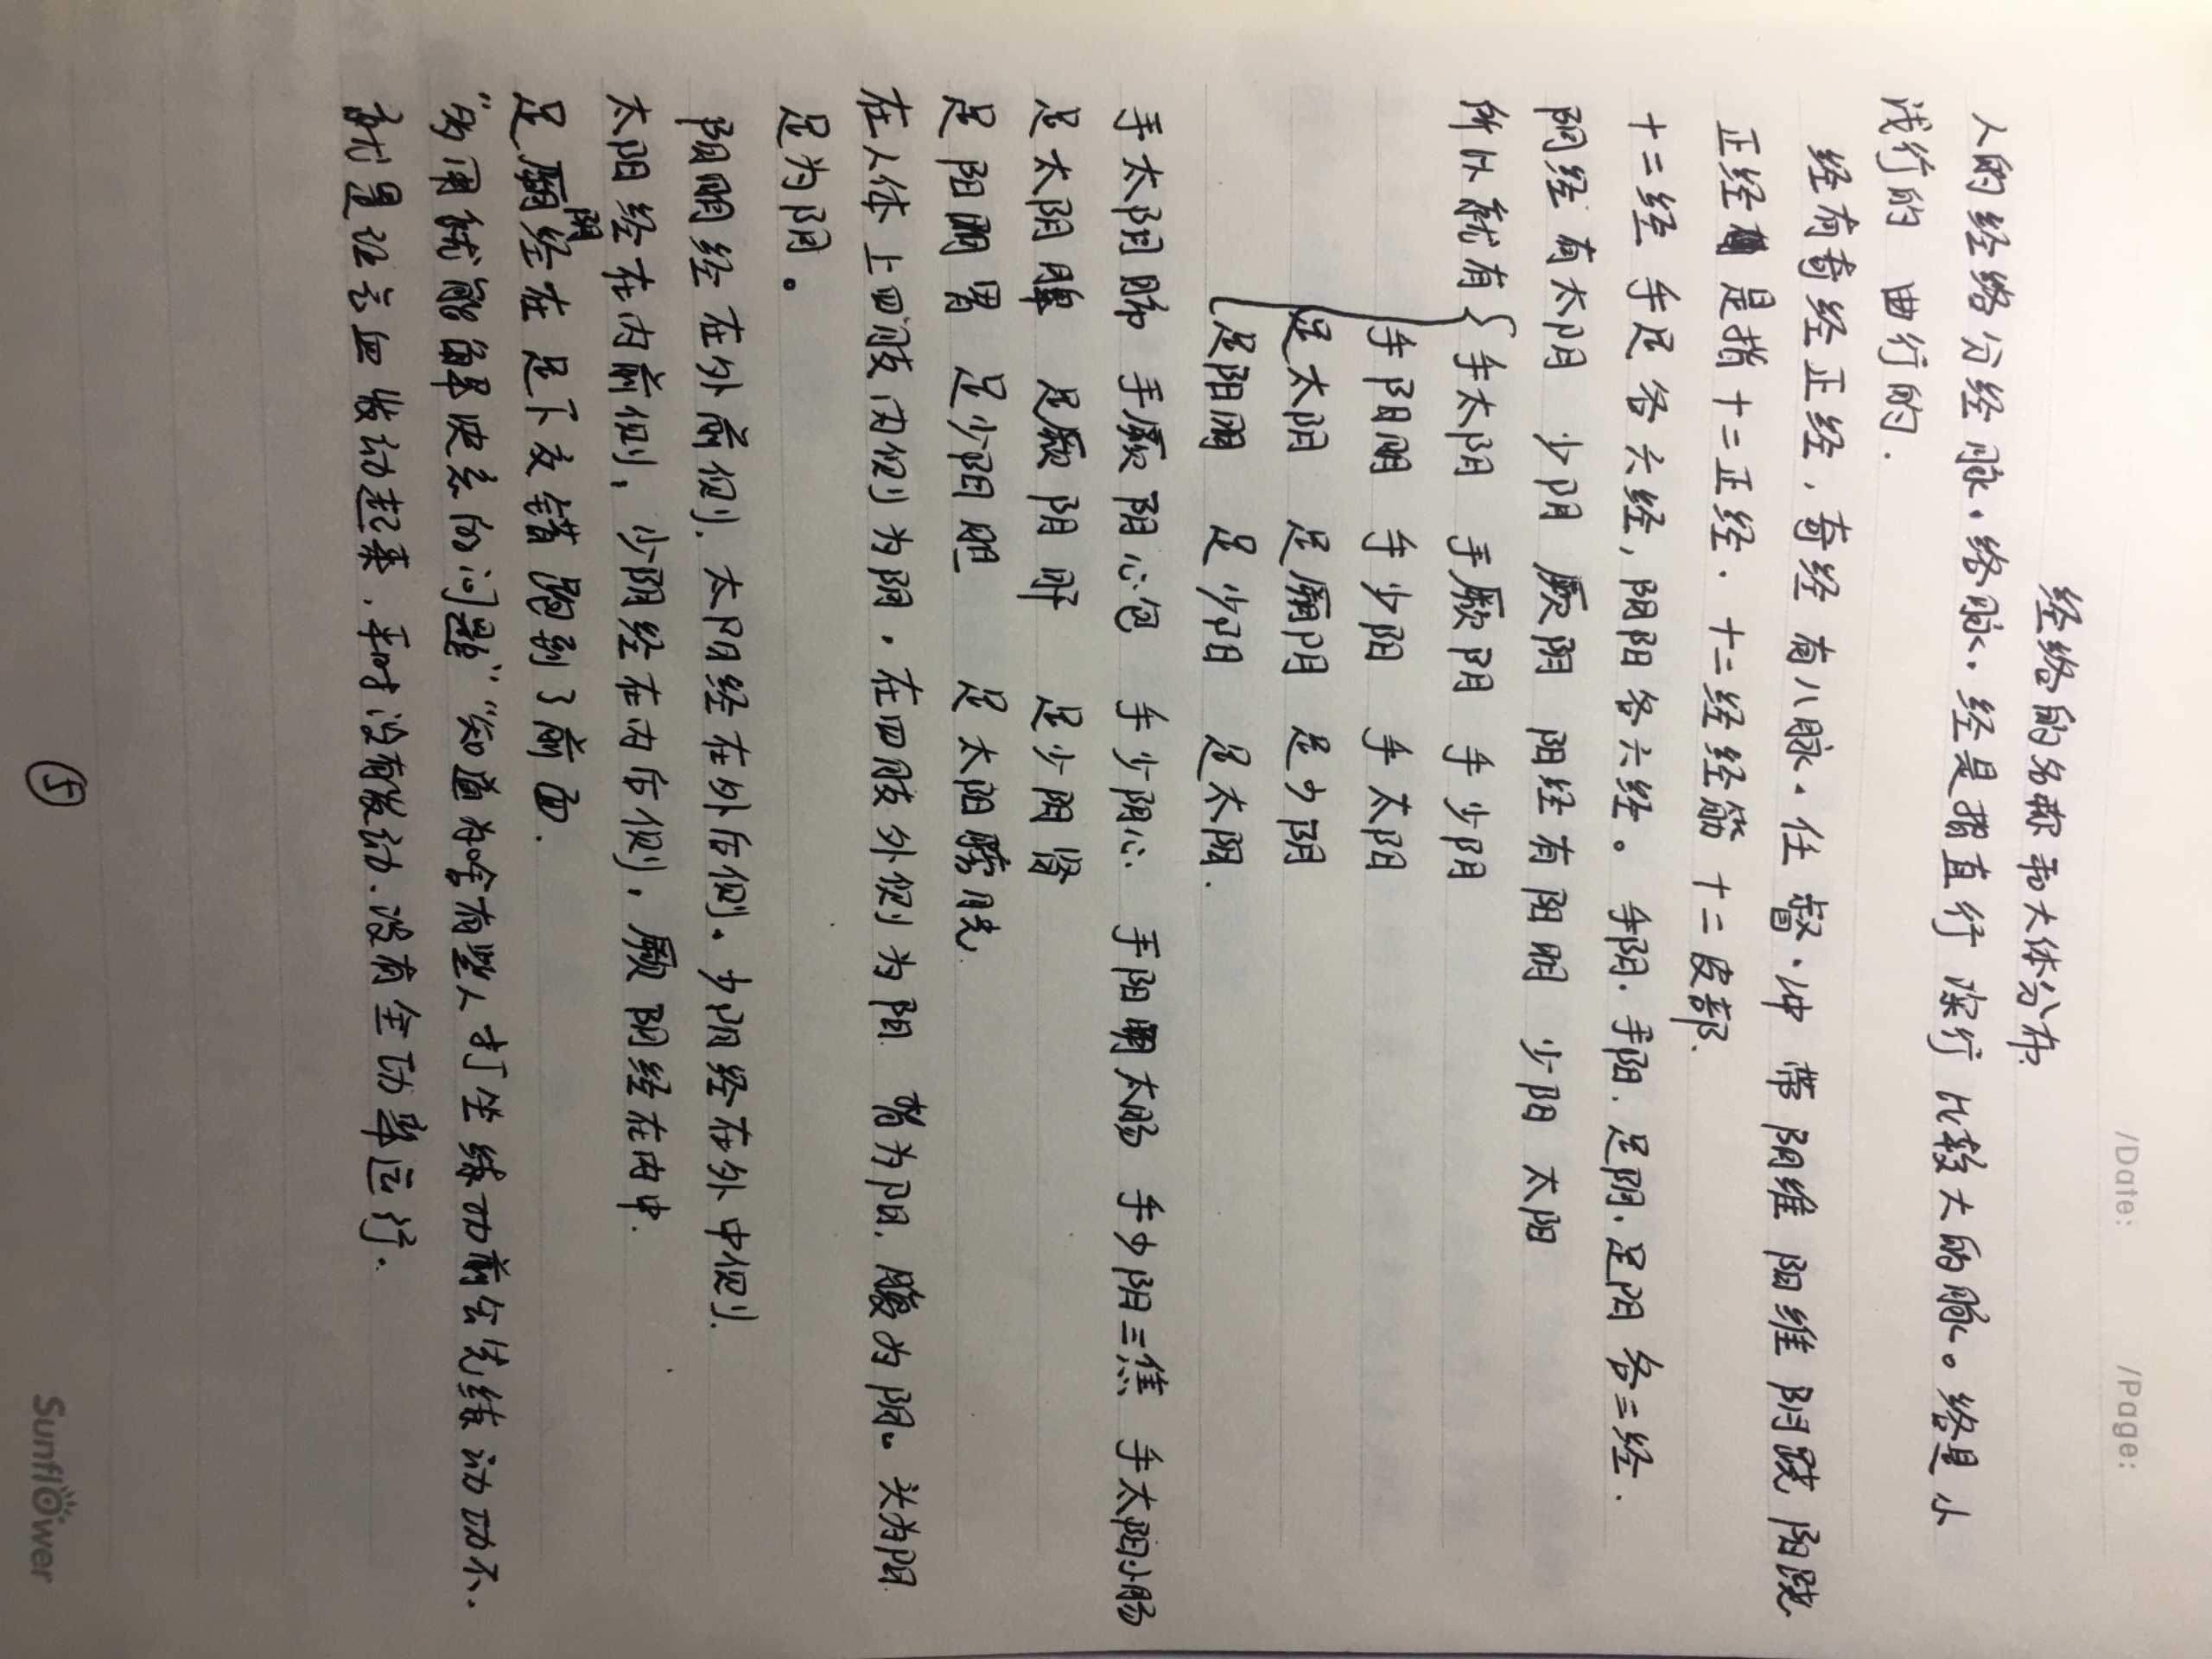 /Date: /Page:
经络的名称和大体分布.
人的经络分经脉.络脉.经是指直行 深行 比较大的脉。络是小
浅行的 曲行的.
经有奇经正经,奇经有八脉.任 督.冲 带 阴维 阳维 阴跷 阳跷
正经 是指十二正经.十二经经筋 十二皮部.
十二经 手足各六经,阴阳各六经。手阴.手阳.足阴.足阳 各三经.
阴经有太阴 少阴 厥阴 阳经有阳明 少阳 太阳
所以就有{手太阴 手厥阴 手少阴
手阳明 手少阳 手太阳
足太阴 足厥阴 足少阴
足阳明 足少阳 足太阳.
手太阴肺 手厥阴心包 手少阴心 手阳明大肠 手少阴三焦 手太阳小肠
足太阴脾 足厥阴肝 足少阴肾
足阳明胃 足少阳胆 足太阳膀胱
在人体上四肢内侧为阴,在四肢外侧为阳 背为阳.腹为阴。头为阳
足为阴。
阳明经在外前侧.太阳经在外后侧.少阳经在外中侧.
太阳经在内前侧,少阴经在内后侧,厥阴经在内中.
足厥阴经在足下交错跑到了前面.
"多用就能解决怎的问题""知道为啥有些人打坐练功前会先练动功不.
就是让气血发动起来.平时没有发动.没有全功率运行.
⑤
Sunflower